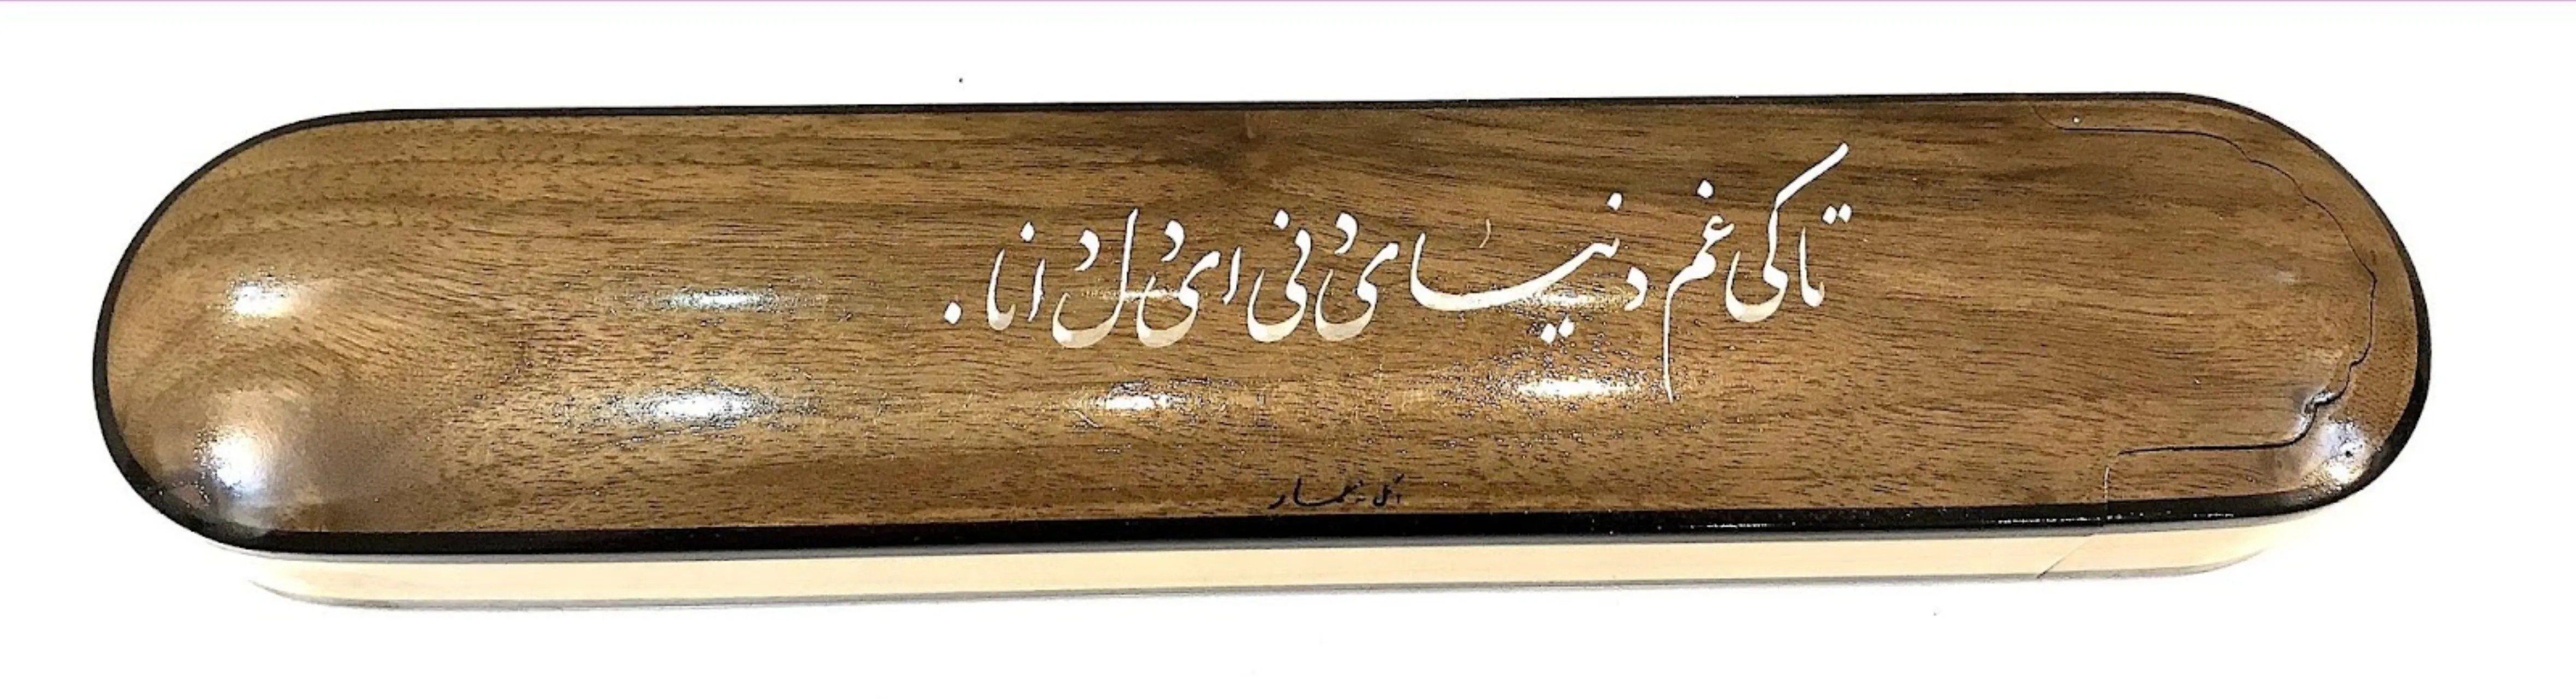 تا کی غم دنیای دنی ای دل دانا